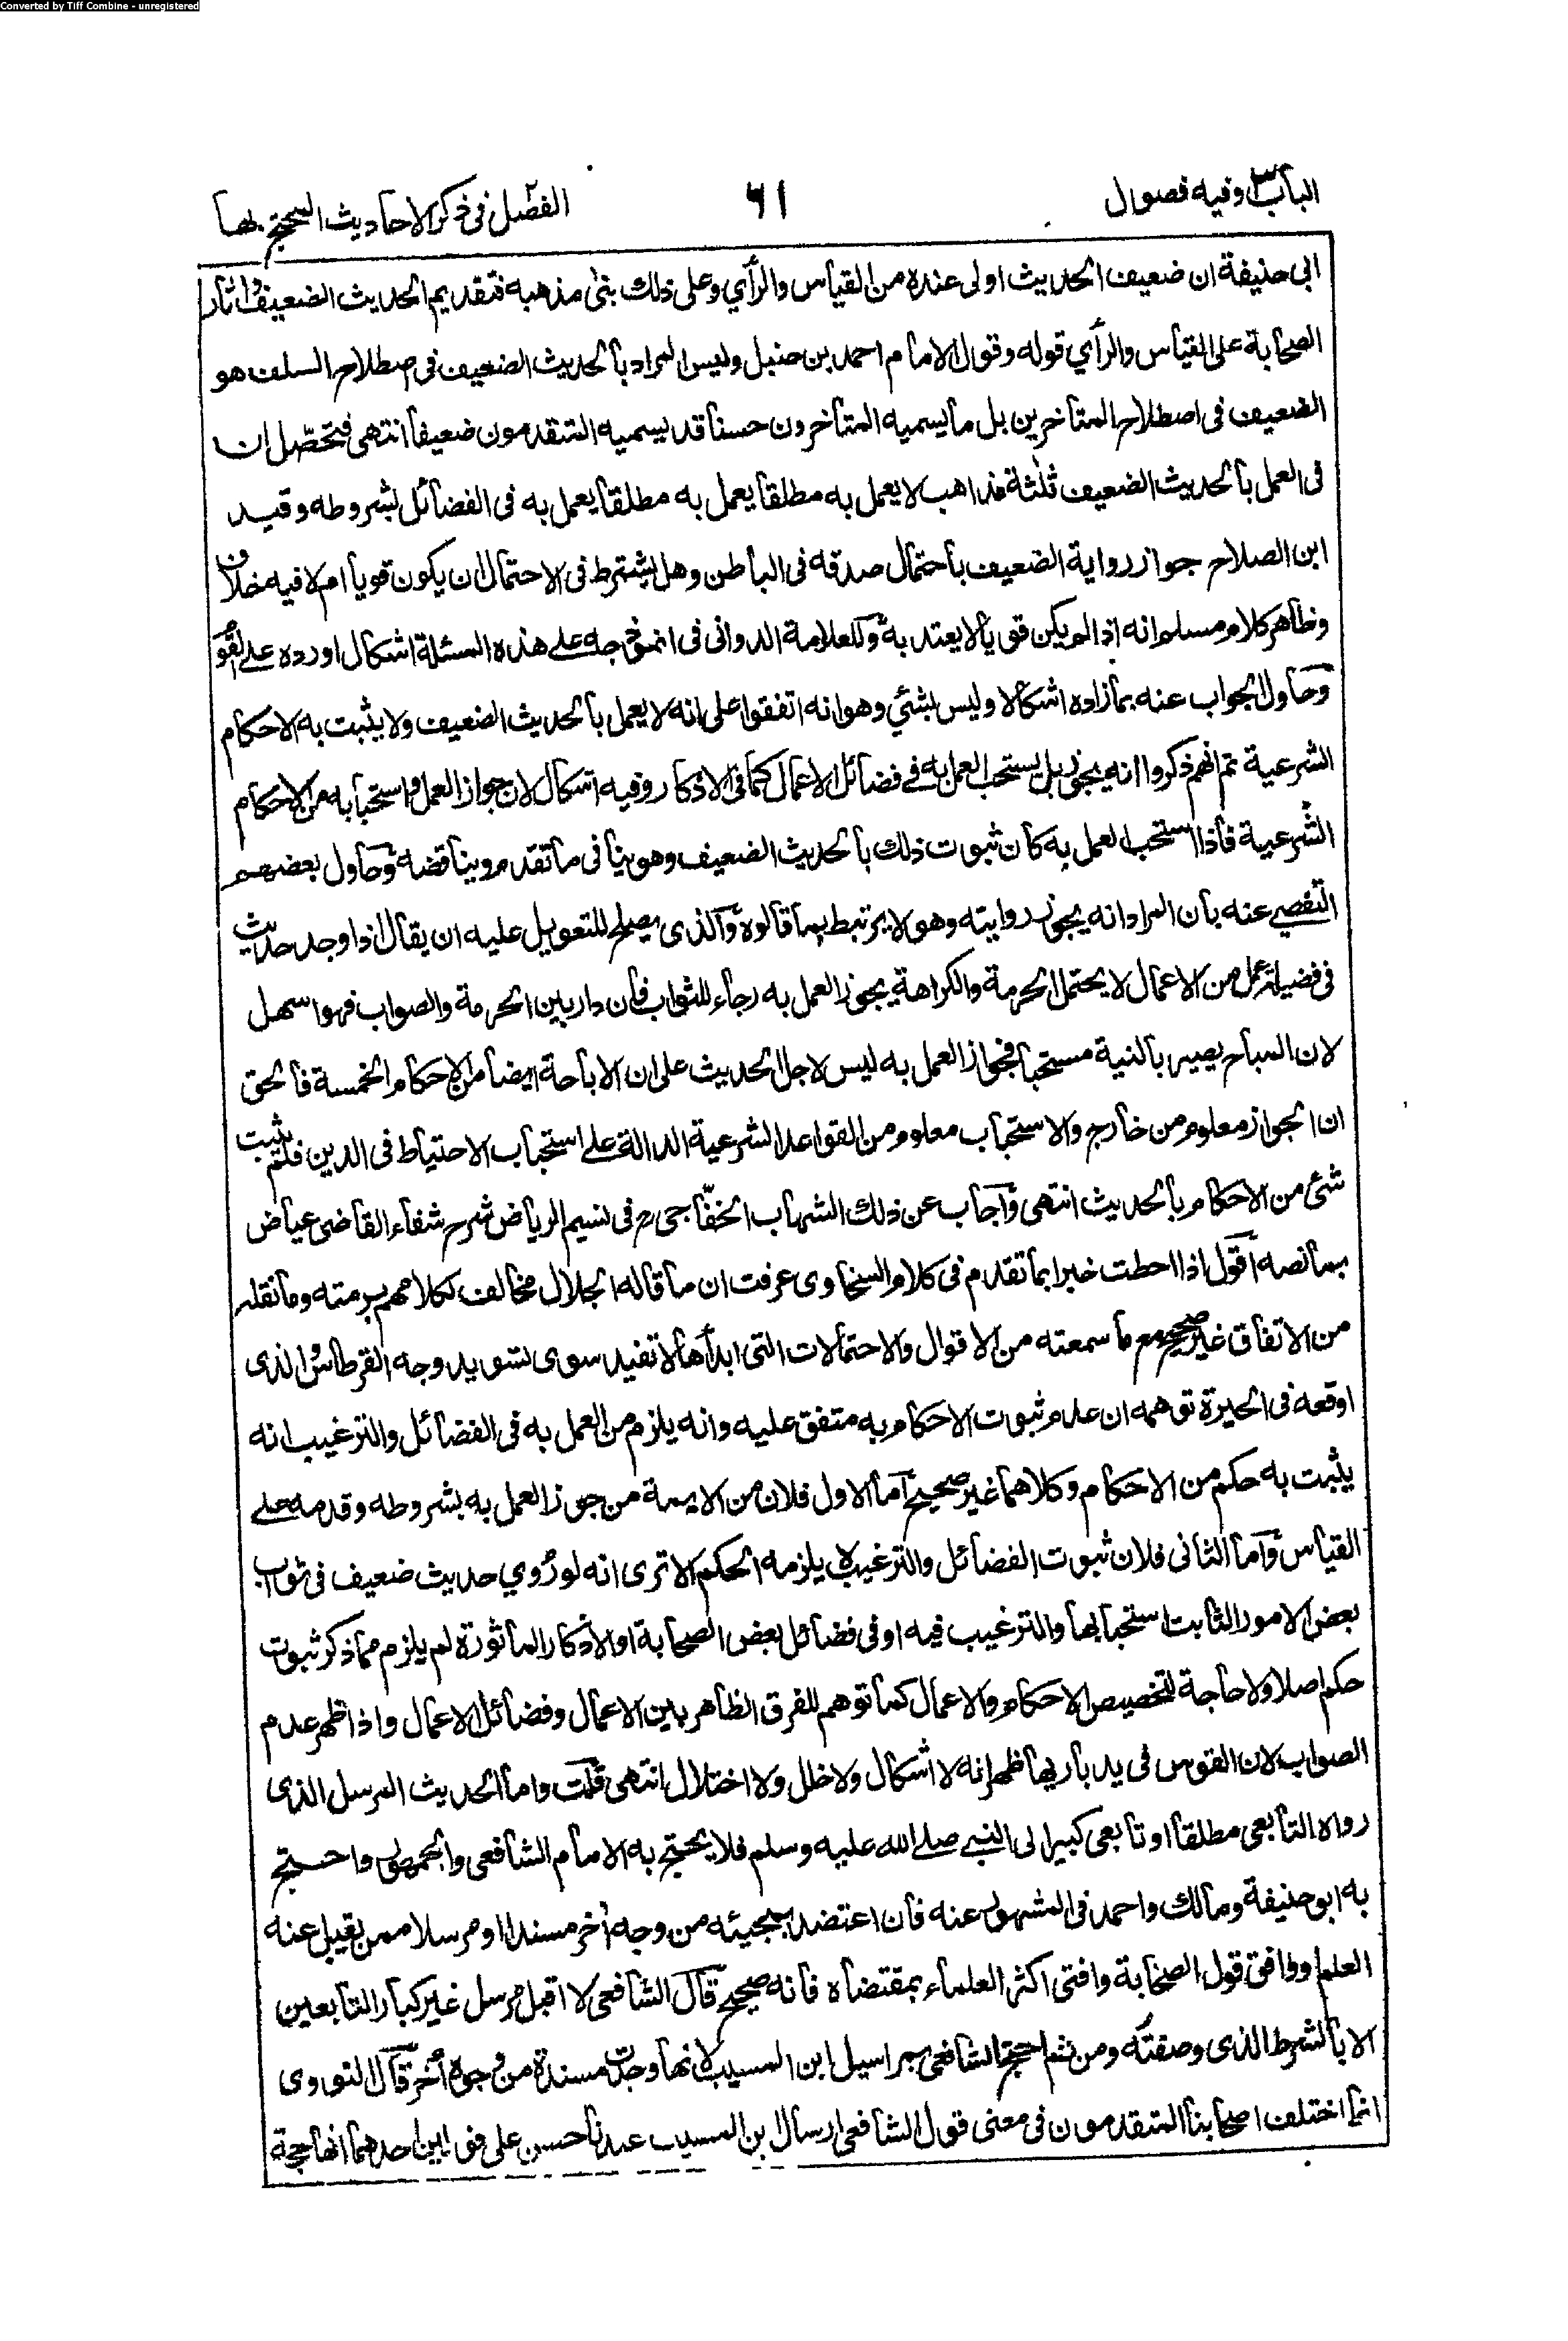 Converted by Tiff Combine - unregistered
الباب ٣ وفيه فصول ٦١ الفصل في ذكر الاحاديث المحتج بها
ابى حنيفة ان ضعيف الحديث اولى عنده من القياس والرأي وعلى ذلك بنى مذهبه فتقديم الحديث الضعيف واثار
الصحابة على القياس والرأي قوله وقول الامام احمد بن حنبل وليس المراد بالحديث الضعيف فى اصطلاح السلف هو
الضعيف فى اصطلاح المتاخرين بل ما يسميه المتاخرون حسنا قد يسميه المتقدمون ضعيفا انتهى فتحصّل ان
فى العمل بالحديث الضعيف ثلثة مذاهب لا يعمل به مطلقا يعمل به مطلقا يعمل به فى الفضائل بشروطه وقيد
ابن الصلاح جواز رواية الضعيف باحتمال صدقه فى الباطن وهل يشترط فى الاحتمال ان يكون قويا ام لا فيه خلاف
وظاهر كلام مسلم انه اذا لم يكن قويا لا يعتد به وللعلامة الدوانى فى انموذجه على هذه المسئلة اشكال اورده على القوم
وحاول الجواب عنه بما زاده اشكالا وليس بشئي وهو انه اتفقوا على انه لا يعمل بالحديث الضعيف ولا يثبت به الاحكام
الشرعية ثم انهم ذكروا انه يجوز بل يستحب العمل به فى فضائل الاعمال كما فى الاذكار وفيه اشكال لان جواز العمل واستحبابه من الاحكام
الشرعية فاذا استحب العمل به كان ثبوت ذلك بالحديث الضعيف وهو ينافى ما تقدم ويناقضه وحاول بعضهم
التفصي عنه بان المراد انه يجوز روايته وهو لا يرتبط بما قالوه والذى يصلح للتعويل عليه ان يقال اذا وجد حديث
فى فضيلة عمل من الاعمال لا يحتمل الحرمة والكراهة يجوز العمل به رجاء للثواب فان دار بين الحرمة والصواب فهو اسهل
لان المباح يصير بالنية مستحبا فجواز العمل به ليس لاجل الحديث على ان الاباحة ايضا من الاحكام الخمسة فالحق
ان الجواز معلوم من خارج والاستحباب معلوم من القواعد الشرعية الدالة على استحباب الاحتياط فى الدين فلم يثبت
شئ من الاحكام بالحديث انتهى واجاب عن ذلك الشهاب الخفّاجى رح فى نسيم الرياض شرح شفاء القاضى عياض
بما نصه اقول اذا احطت خبرا بما تقدم فى كلام السخاوى عرفت ان ما قاله الجلال مخالف لكلامهم برمته وما نقله
من الاتفاق غير صحيح مع ما سمعته من الاقوال والاحتمالات التى ابداها لا تفيد سوى تسويد وجه القرطاس والذى
اوقعه فى الحيرة توهمه ان عدم ثبوت الاحكام به متفق عليه وانه يلزم من العمل به فى الفضائل والترغيب انه
يثبت به حكم من الاحكام وكلاهما غير صحيح اما الاول فلان من الايمة من جوز العمل به بشروطه وقدمه على
القياس واما الثانى فلان ثبوت الفضائل والترغيب لا يلزمه الحكم الا ترى انه لو رُوي حديث ضعيف فى ثواب
بعض الامور الثابت استحبابها والترغيب فيه او فى فضائل بعض الصحابة او الاذكار المأثورة لم يلزم مما ذكر ثبوت
حكم اصلا ولا حاجة لتخصيص الاحكام والاعمال كما توهم للفرق الظاهر بين الاعمال وفضائل الاعمال واذا ظهر عدم
الصواب لان القوس فى يد باريها ظهر انه لا اشكال ولا خلل ولا اختلال انتهى قلت واما الحديث المرسل الذى
رواه التابعى مطلقا او تابعى كبير الى النبي صلى الله عليه وسلم فلا يحتج به الامام الشافعى والجمهور واحتج
به ابو حنيفة ومالك واحمد فى المشهور عنه فان اعتضد بمجيئه من وجه اخر مسندا او مرسلا ممن يقبل عنه
العلم او وافق قول الصحابة وافتى اكثر العلماء بمقتضاه فانه صحيح قال الشافعى لا اقبل مرسل غير كبار التابعين
الا بالشرط الذى وصفته ومن ثم احتج الشافعى بمراسيل ابن المسيب لانها وجدت مسندة من وجوه أخر قال النووى
انما اختلف اصحابنا المتقدمون فى معنى قول الشافعى ارسال ابن المسيب عندنا حسن على قولين احدهما انها حجة